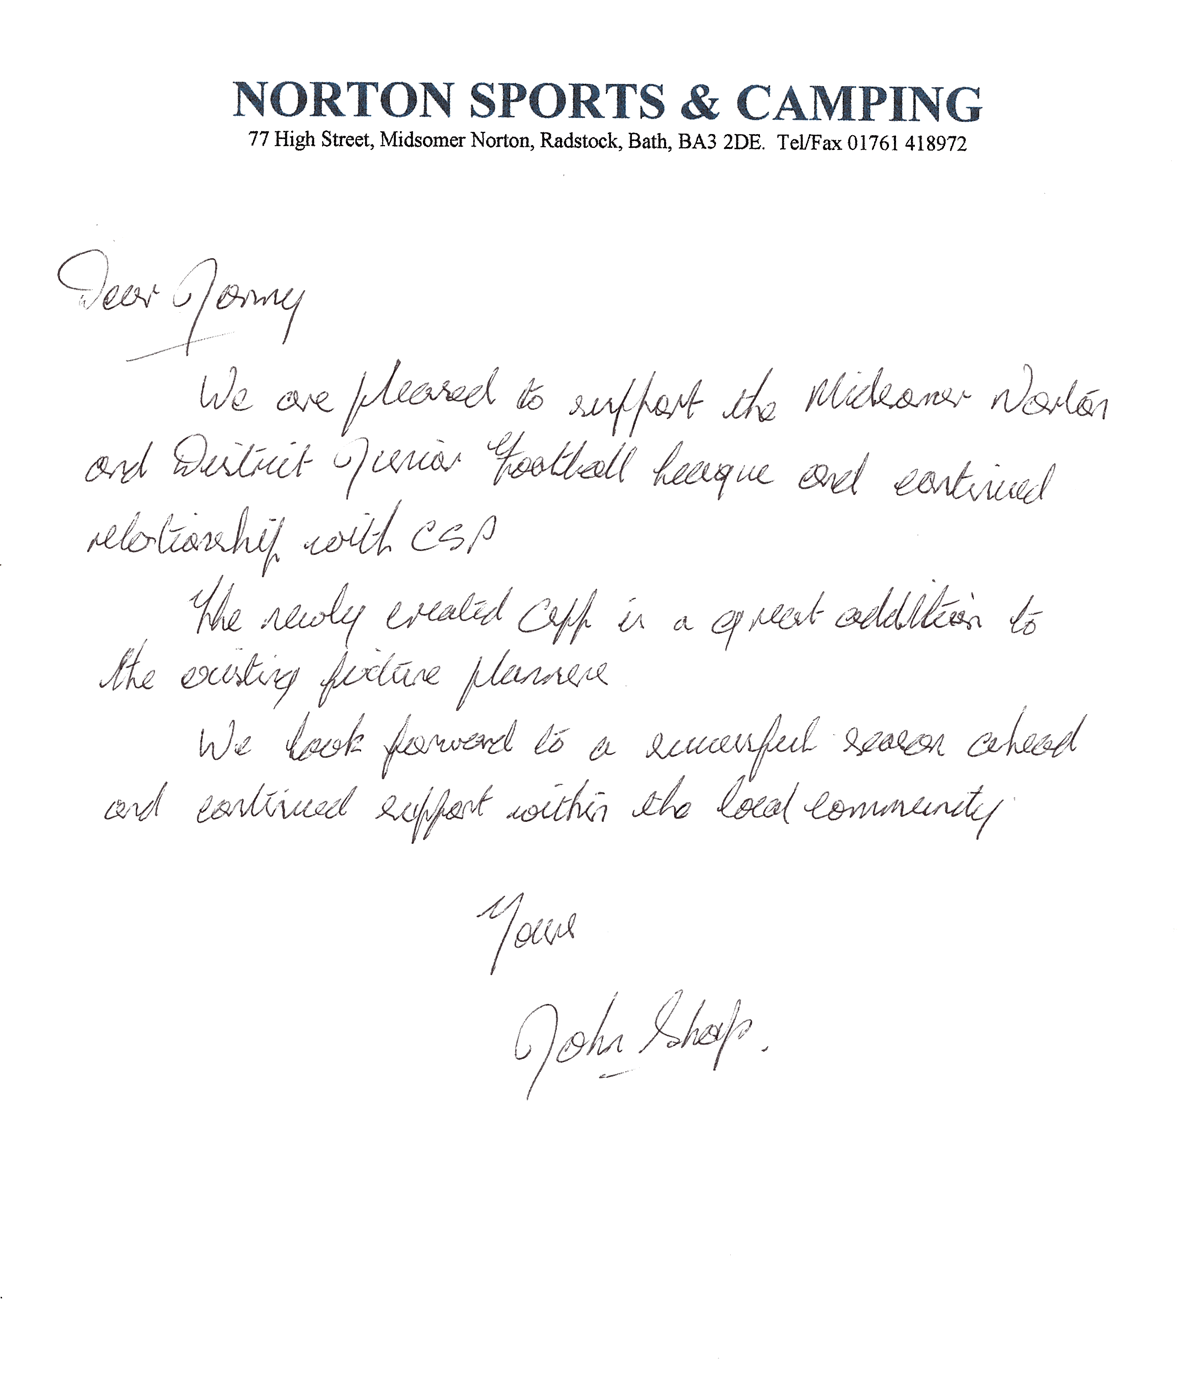 NORTON SPORTS & CAMPING
77 High Street, Midsomer Norton, Radstock, Bath, BA3 2DE. Tel/Fax 01761 418972
Dear
We are pleased to support the Midsomer Norton
and District Junior Football League and continued
relationship with CSP
The newly created app is a great addition to
the existing fixture planners
We look forward to a successful season ahead
and continued support within the local community
Yours
John Sharp.